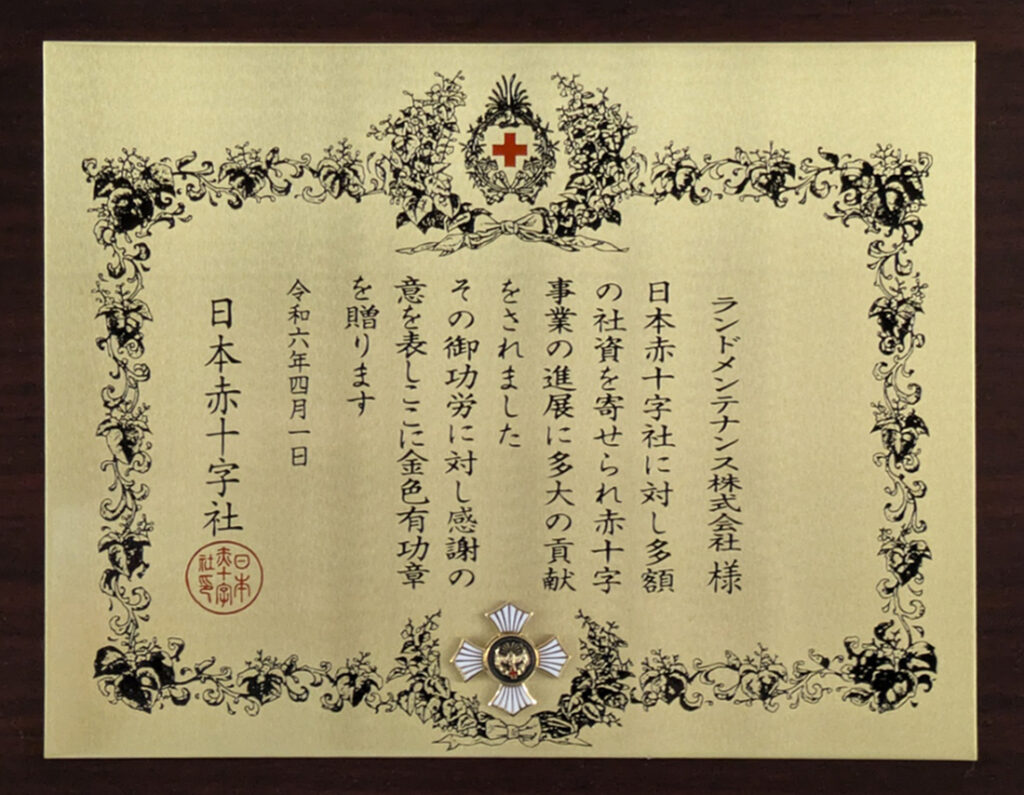 ランドメンテナンス株式会社 様
日本赤十字社に対し多額
の社資を寄せられ赤十字
事業の進展に多大の貢献
をされました
その御功労に対し感謝の
意を表しここに金色有功章
を贈ります
令和六年四月一日
日本赤十字社
日本
赤十字
社印